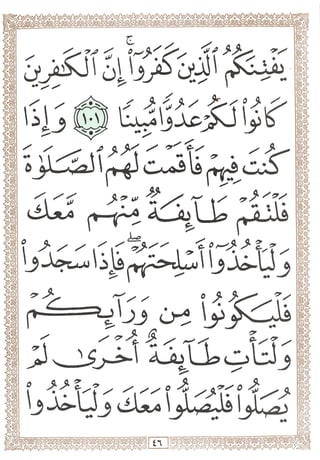 يَفْتِنَكُمُ ٱلَّذِينَ كَفَرُوٓا۟ ۚ إِنَّ ٱلْكَـٰفِرِينَ
كَانُوا۟ لَكُمْ عَدُوًّا مُّبِينًا ١٠١ وَإِذَا
كُنتَ فِيهِمْ فَأَقَمْتَ لَهُمُ ٱلصَّلَوٰةَ
فَلْتَقُمْ طَآئِفَةٌ مِّنْهُم مَّعَكَ
وَلْيَأْخُذُوٓا۟ أَسْلِحَتَهُمْ ۖ فَإِذَا سَجَدُوا۟
فَلْيَكُونُوا۟ مِن وَرَآئِكُمْ
وَلْتَأْتِ طَآئِفَةٌ أُخْرَىٰ لَمْ
يُصَلُّوا۟ فَلْيُصَلُّوا۟ مَعَكَ وَلْيَأْخُذُوا۟
٤٦